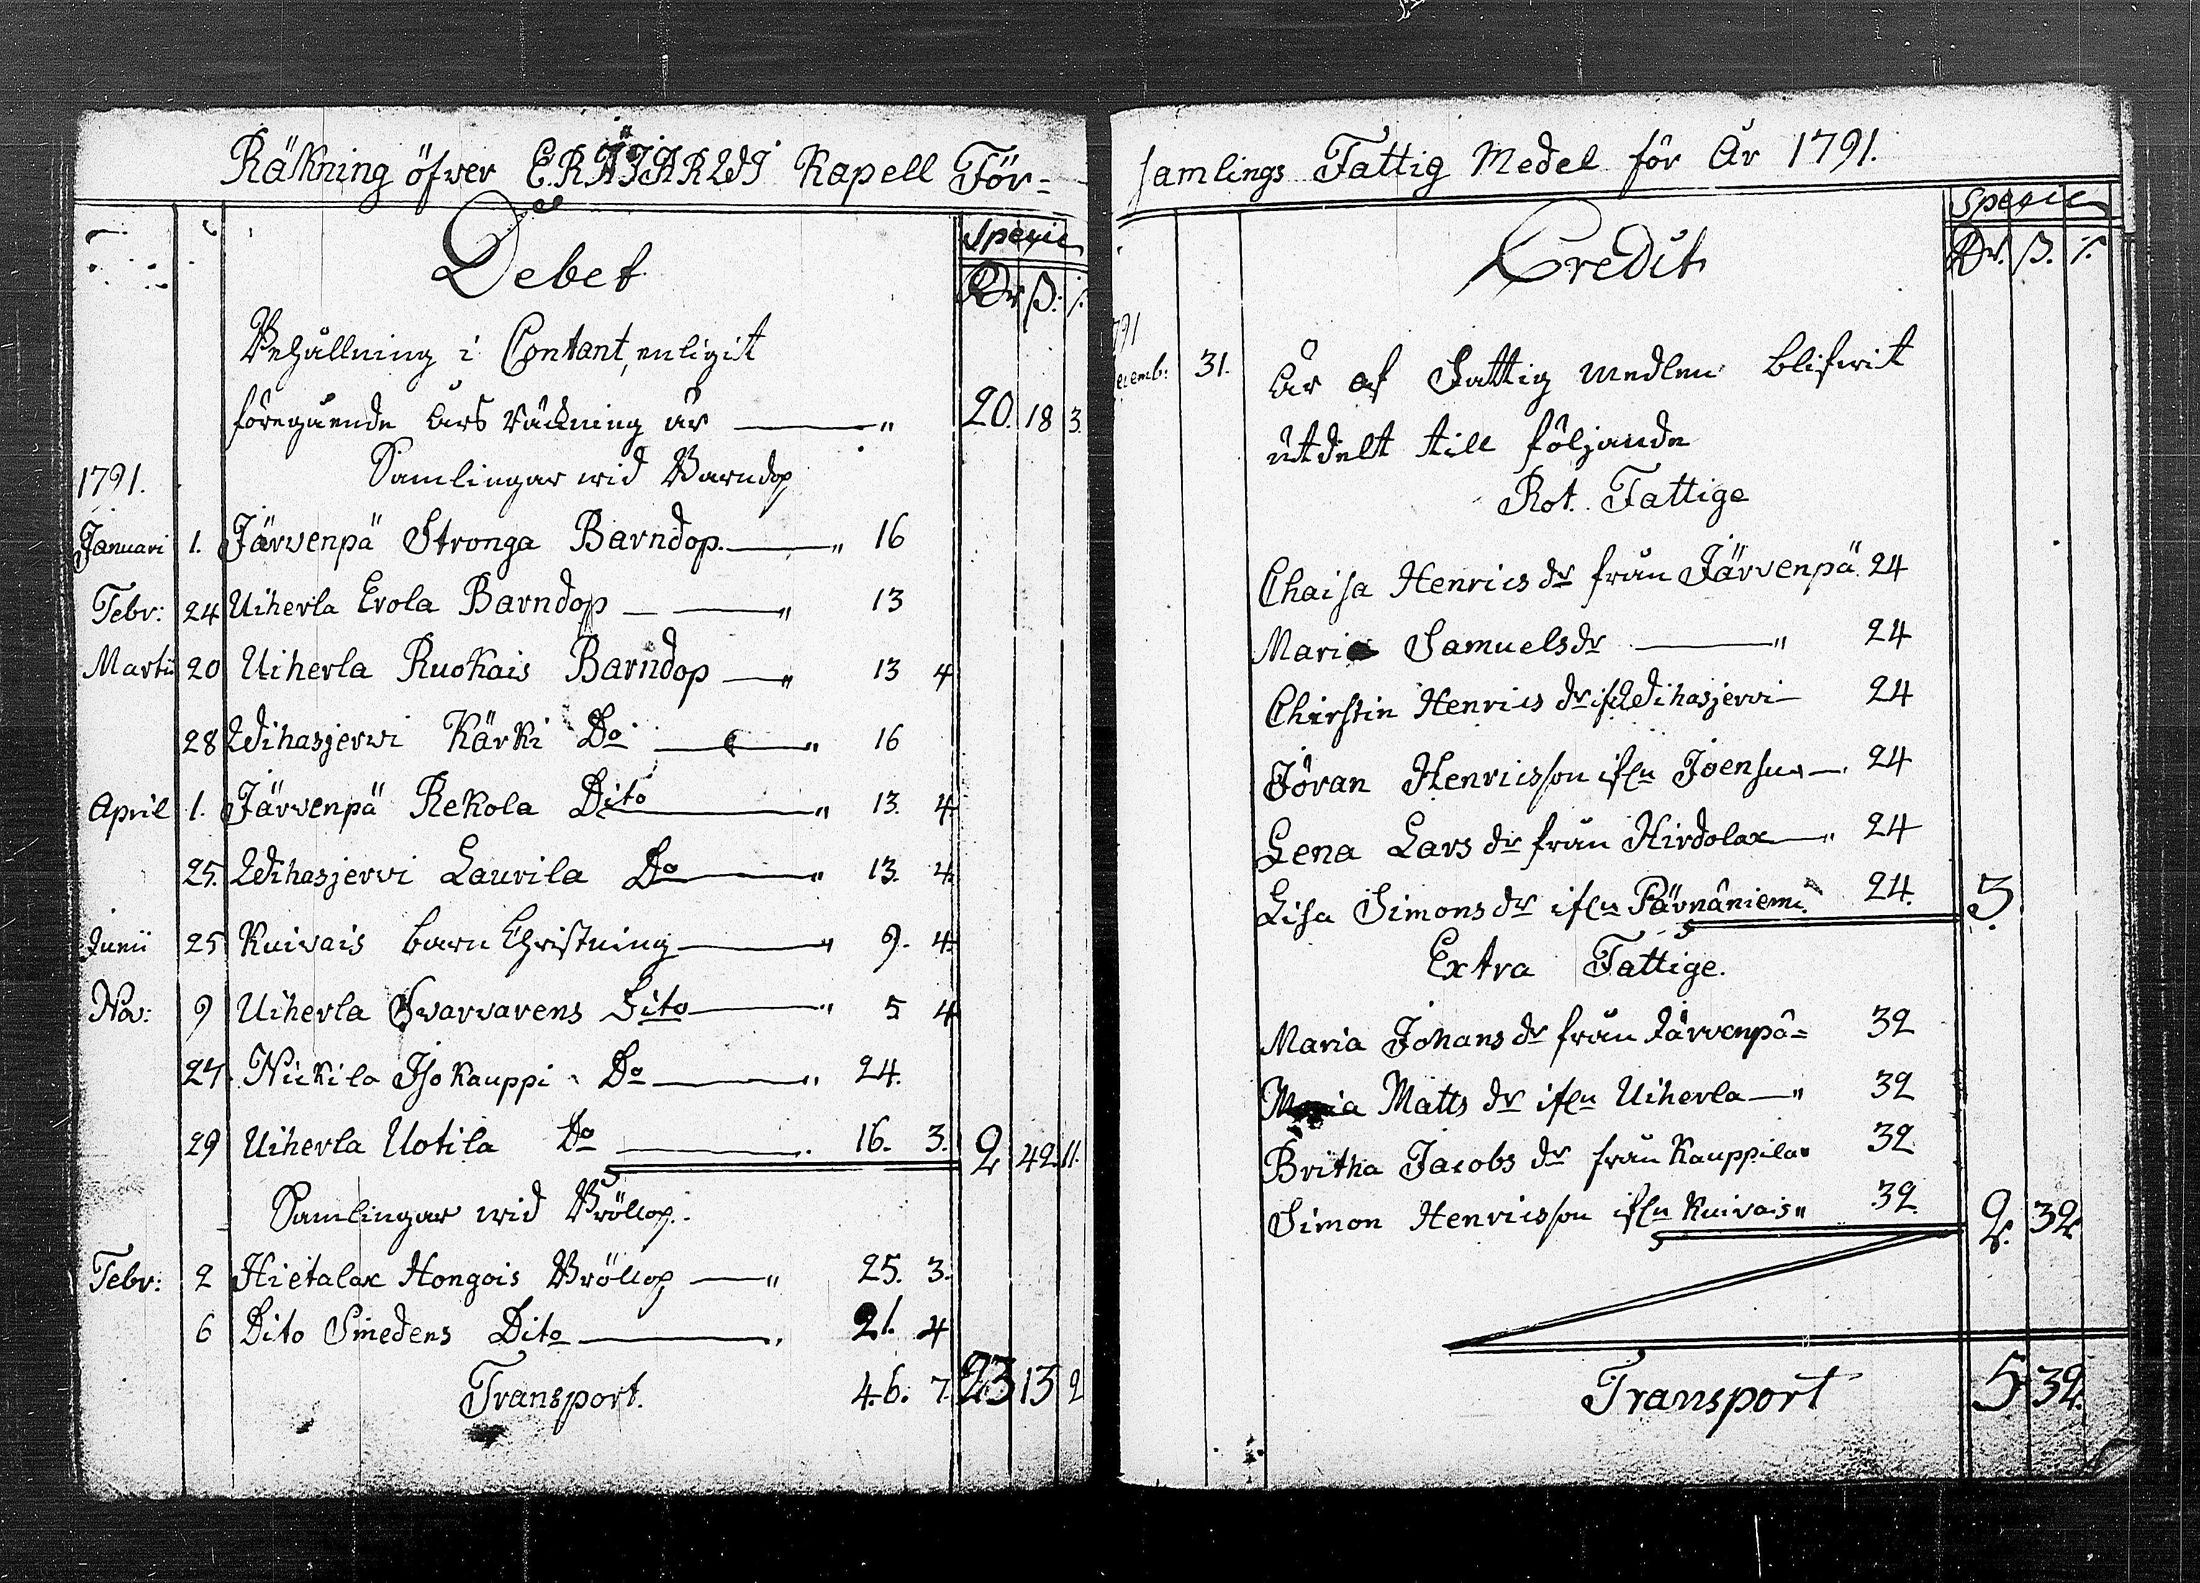 Räkning öfver ERÄJÄRWI Kapell För=
Debet
Specie
Rdr ß: /:
Behållning i Contant, enligit
föregående års räckning är — " 20. 18 3.
1791. Samlingar wid Barndop
Januari 1. Järvenpä Stronga Barndop. — " 16
Febr: 24 Uiherla Erola Barndop — — " 13
Martii 20 Uiherla Ruokais Barndop — " 13 4
28 Wihasjerwi Kärki Do — " 16
April 1. Järvenpä Rekola Dito — " 13. 4.
25. Wihasjervi Laurila Do — " 13. 4.
Junii 25 Kuivais barn Christning — " 9. 4.
Nov: 9 Uiherla Svarvarens Dito — " 5 4
27. Nickila Iso Kauppi Do — " 24.
29 Uiherla Uotila Do — " 16. 3. 2 42. 11.
Samlingar wid Bröllop.
Febr: 2 Hietalax Hongois Bröllop — " 25. 3.
6 Dito Smedens Dito — " 21. 4
Transport. 46. 7. 23 13 2
samlings Fattig Medel för År 1791.
Credit
Specie
Rdr. ß. /.
1791
Decemb: 31. Är af Fattig medlen blifwit
utdelt till följande
Rot. Fattige
Chaisa Henrics dr från Järvenpä 24
Maria Samuels dr — " 24
Chirstin Henrics dr ifr Wihasjervi — 24
Jöran Henricsson ifrn Joensu — 24
Lena Lars dr från Hirdolax — " 24
Lisa Simons dr ifrn Pävnäniemi. 24. 3.
Extra Fattige.
Maria Johans dr från Järvenpä = 32
Maria Matts dr ifrn Uiherla — " 32
Britha Jacobs dr från Kauppila " 32
Simon Henricsson ifrn Kuivais " 32. 2. 32
Transport 5 32.